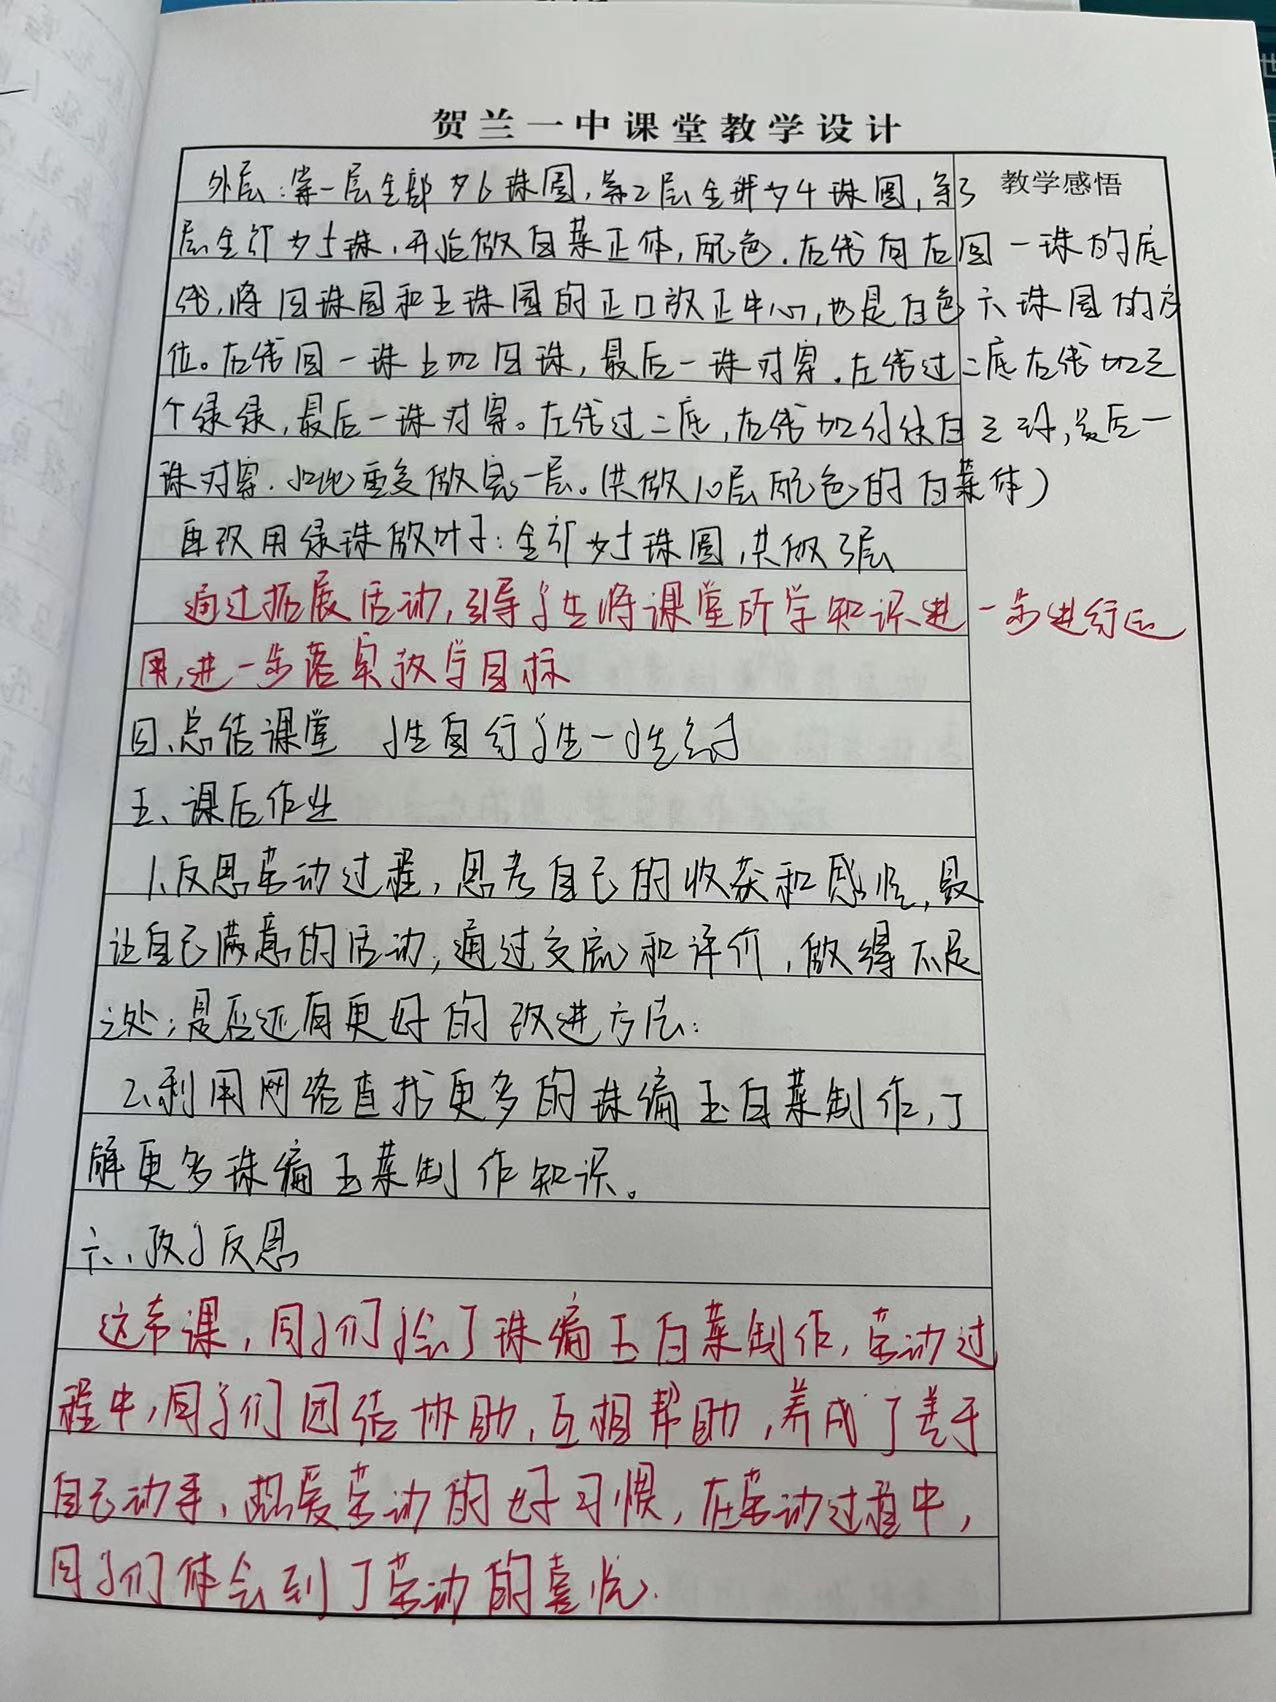 贺兰一中课堂教学设计
教学感悟
外层:第一层全部为6珠圆,第2层全部为4珠圆,第3
层全部为5珠,开始做白菜正体,配色.右线向右回一珠的底
线,将四珠圆和五珠圆的正口放正中心,也是白色六珠圆的方
位。右线回一珠上加四珠,最后一珠对穿.左线过二底右线加三
个绿绿,最后一珠对穿。左线过二底,右线加 白三 ,最后一
珠对穿.如此重复做完一层。(共做10层配色的白菜体)
再改用绿珠做叶子:全部为5珠圆,共做3层
通过拓展活动,引导学生将课堂所学知识进一步进行运
用,进一步落实教学目标
四、总结课堂 生自行 生一
五、课后作业
1.反思劳动过程,思考自己的收获和感悟,最
让自己满意的活动,通过交流和评价,做得不足
之处;是否还有更好的改进方法:
2.利用网络查找更多的珠编玉白菜制作,了
解更多珠编玉菜制作知识。
六、教学反思
这节课,同学们学会了珠编玉白菜制作,劳动过
程中,同学们团结协助,互相帮助,养成了善于
自己动手、热爱劳动的好习惯,在劳动过程中,
同学们体会到了劳动的喜悦.